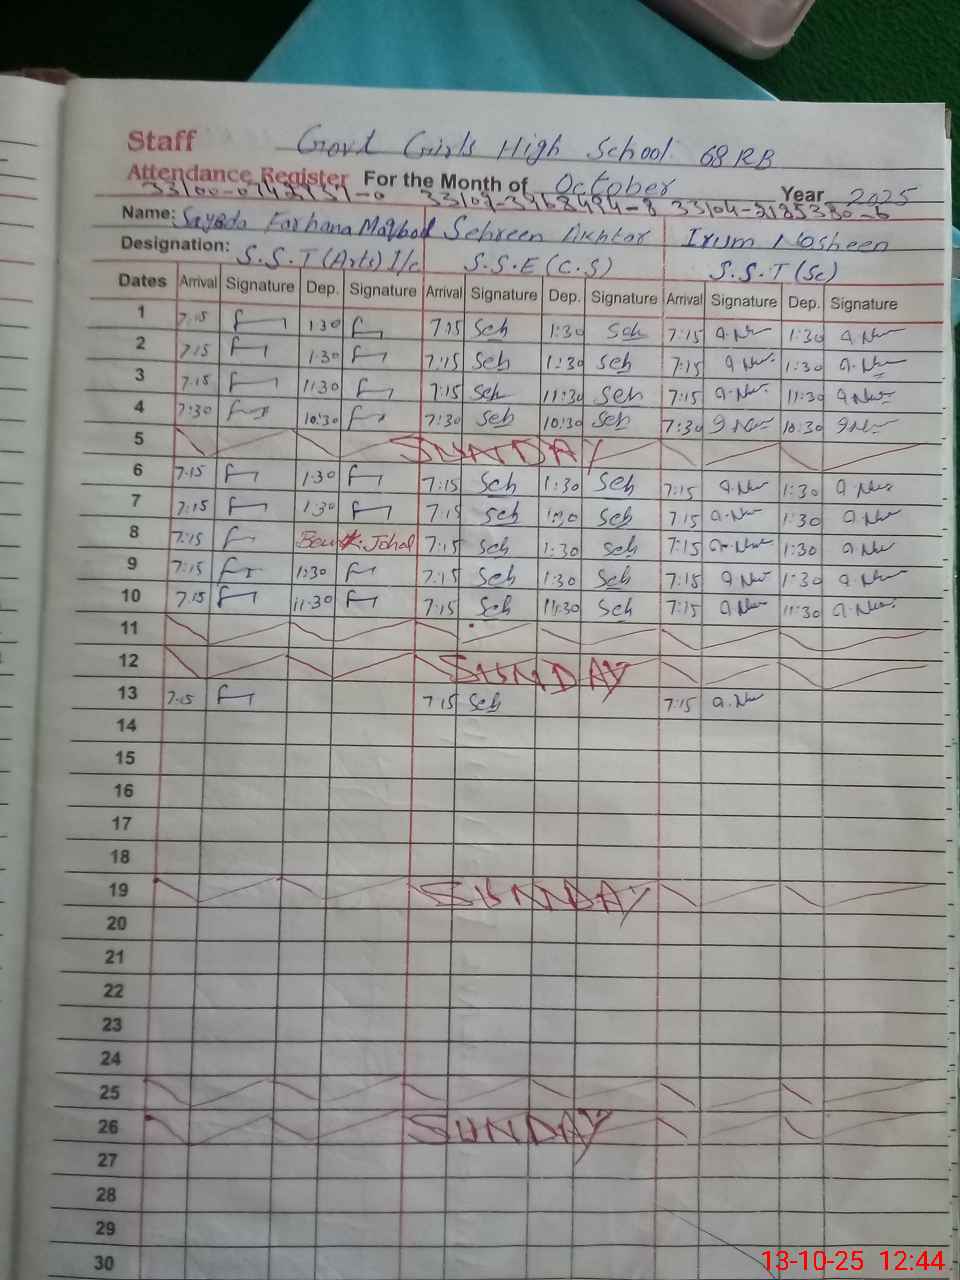 Staff Govt Girls High School 68 RB
Attendance Register For the Month of October Year 2025
33100-0742937-0 33107-3968494-8 33104-2185380-6
Name: Sayeda Farhana Maqbool Sehreen Akhtar Irum Nosheen
Designation: S.S.T (Arts) I/c S.S.E (C.S) S.S.T (Sc)
Dates Arrival Signature Dep. Signature Arrival Signature Dep. Signature Arrival Signature Dep. Signature
1 7:15 1:30 7:15 Seh 1:30 Seh 7:15 1:30
2 7:15 1:30 7:15 Seh 1:30 Seh 7:15 1:30
3 7:15 11:30 7:15 Seh 11:30 Seh 7:15 11:30
4 7:30 10:30 7:30 Seh 10:30 Seh 7:30 10:30
5 SUNDAY
6 7:15 1:30 7:15 Seh 1:30 Seh 7:15 1:30
7 7:15 1:30 7:15 Seh 1:30 Seh 7:15 1:30
8 7:15 7:15 Seh 1:30 Seh 7:15 1:30
9 7:15 1:30 7:15 Seh 1:30 Seh 7:15 1:30
10 7:15 11:30 7:15 Seh 11:30 Seh 7:15 11:30
11
12 SUNDAY
13 7:15 7:15 Seh 7:15
14
15
16
17
18
19 SUNDAY
20
21
22
23
24
25
26 SUNDAY
27
28
29
30
13-10-25 12:44